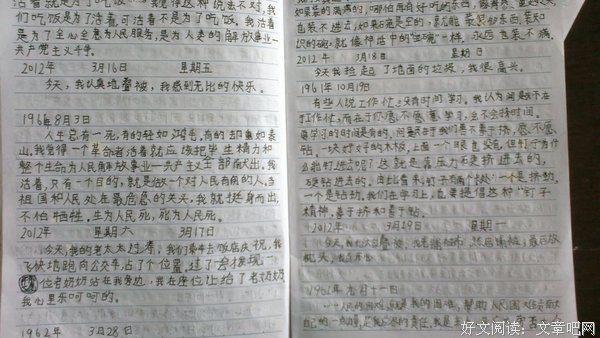 活着就是为了吃饭
们吃饭是为了活着,可活着不是为了吃饭。我活着
是为了全心全意为人民服务,是为人类的解放事业—
共产党主义
2012年 3月16日 星期五
今天,我认真地叠被,我感到无比的快乐。
196 年8月3日
人生总有一死,有的轻如鸿毛,有的却重如泰
山。我觉得一个革命者活着就应该把毕生精力和
整个生命为人民解放事业—共产主义全部献出。我
活着,只有一个目的,就是做一个对人民有用的人。当
祖国和人民处在最危急的关头,我就挺身而出,
不怕牺牲。生为人民死,死为人民死。
2012年 星期六 3月17日
今天,我的老太太过寿,我们乘车去饭店庆祝,我
飞快地跑向公交车,占了个位置,过了一会才发现一
位老奶奶站在我旁边,我在座位让给了老奶奶
我心里乐呵呵的。
1962年 3月28日
如果装的满满的,哪怕再有好吃的东西,
包装不进去,如果碗是空的,就能装很多东西,装知
识的碗,就像神话中的“宝碗”一样,永远也装不满。
2012年 3月18日 星期日
今天我捡起了地面的垃圾,我很高兴。
1961年10月19日
有些人说工作忙没有时间学习。我认为问题不在
工作忙,而在于你愿不愿意学习,会不会挤时间。
要学习的时间是有的,问题在于我们善不善于挤,愿不愿
钻。一块好好的木板,上面一个眼也没有,但钉子为什
么能钉进去呢?这就是靠压力硬挤进去的,
硬钻进去的。由此看来,钉子有两个长处:一个是挤劲,
一个是钻劲。我们在学习上,也要提倡这种“钉子
精神,善于挤和善于钻。
2012年 3月19日 星期一
1961年
一个人的困难就是我的困难,帮助人民困难
自己的一点力量,是我应尽的责任,我是主人
好文阅读:文章吧网